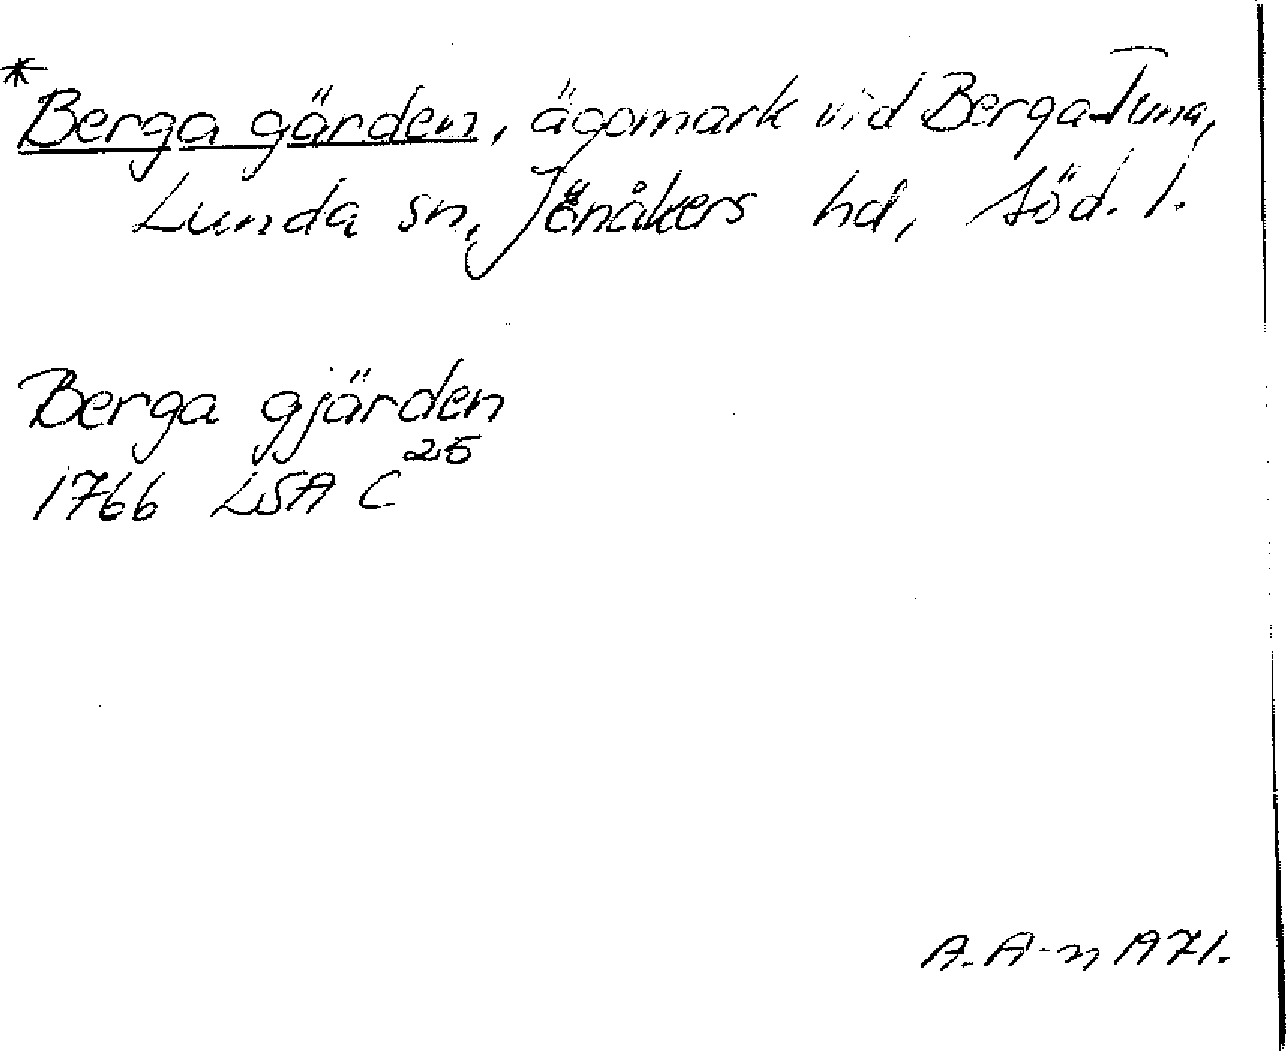 *Berga gärden, ägomark vid Berga-Tuna,
Lunda sn, Jönåkers hd, Söd. l.
Berga gjärden
1766 LSA C 25
A. A-n 1971.